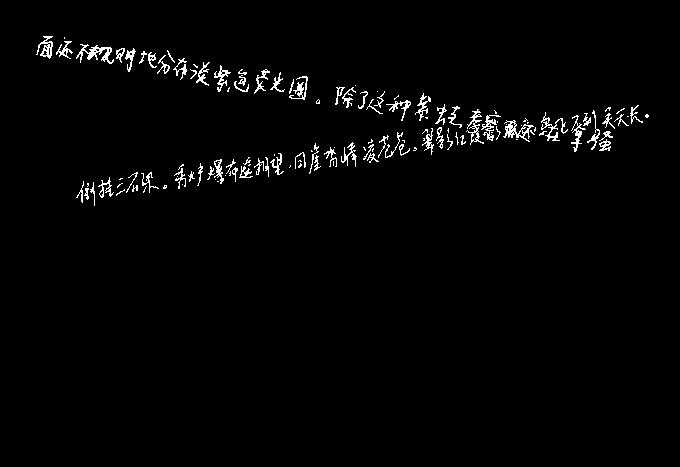 面还不规则地分布淡紫色荧光圈。除了这种黄
倒挂三石梁。香炉瀑布遥相望,回崖沓嶂凌苍苍。翠影红霞映朝日鸟飞不到吴天长。